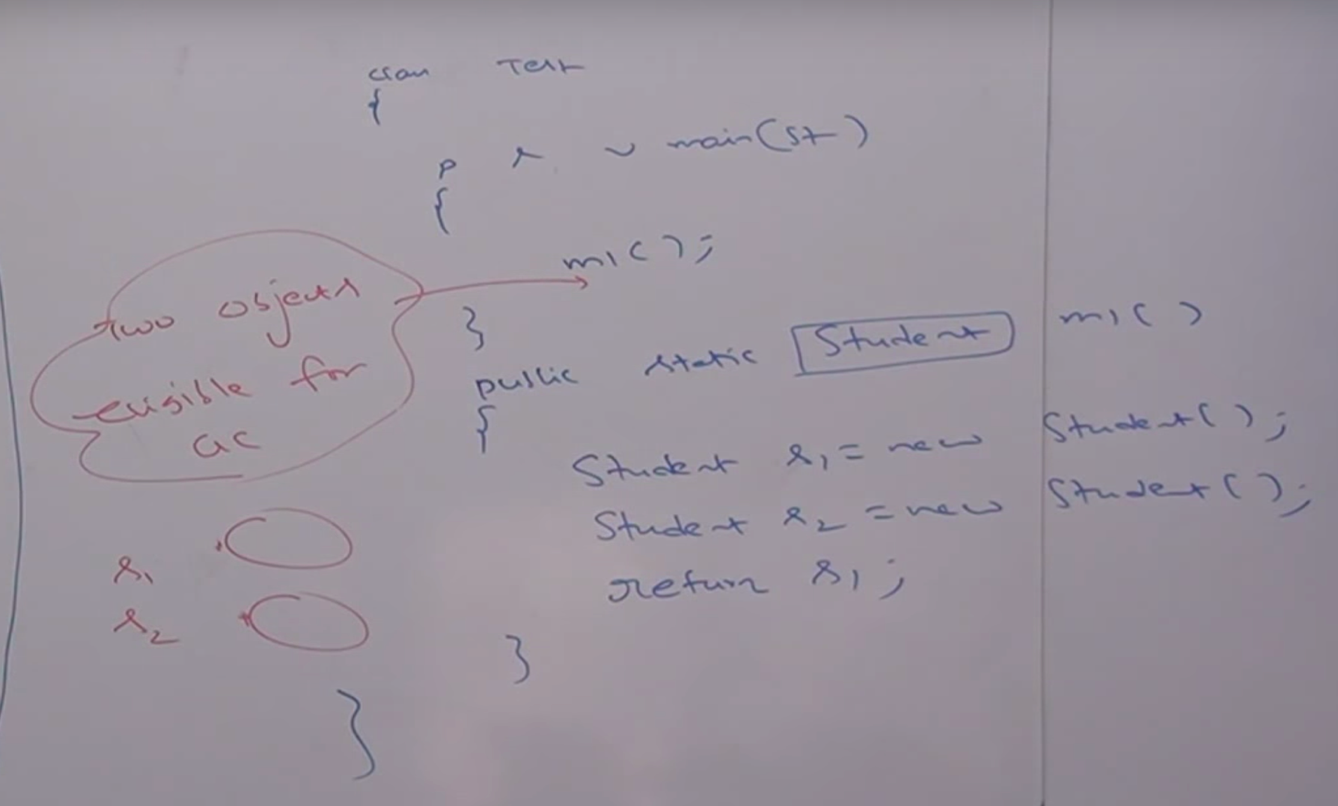 class Test
{
p s v main(St)
{
m1();
}
public static Student m1()
{
Student s1 = new Student();
Student s2 = new Student();
return s1;
}
}
two objects
eligible for
GC
s1
s2